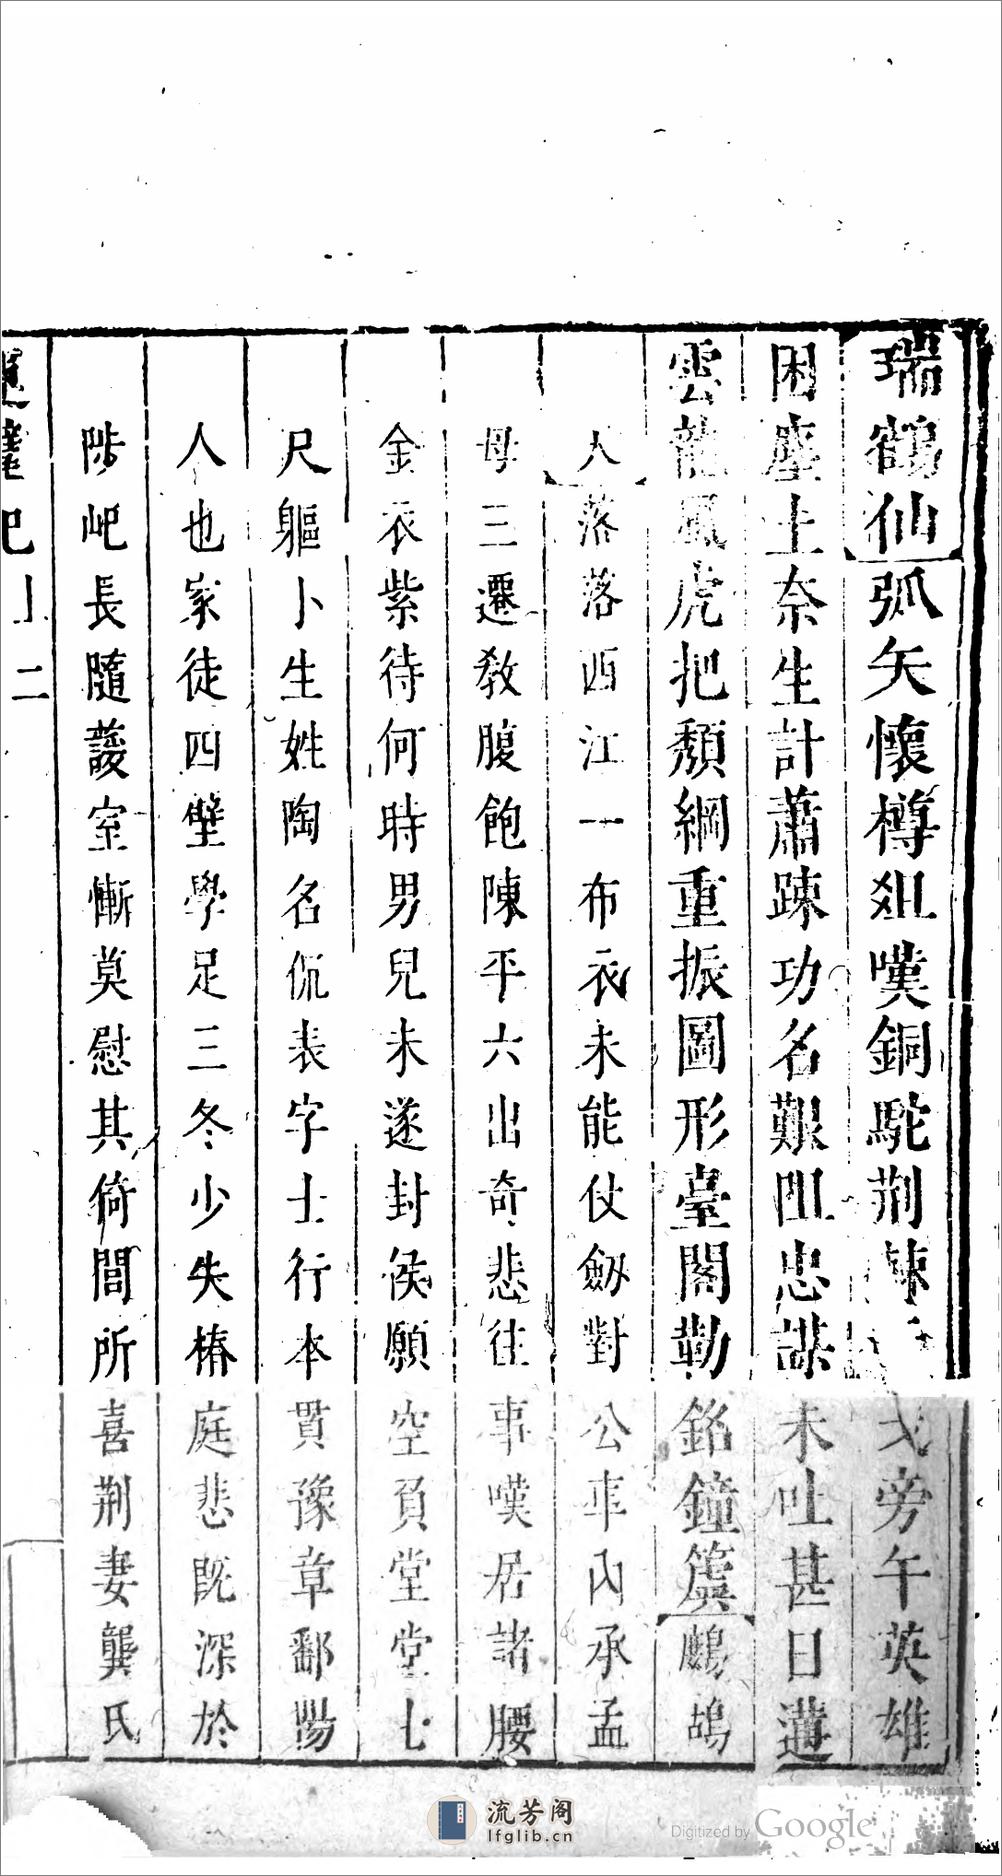 瑞鶴仙弧矢懷樽俎嘆銅駝荆棘干戈旁午英雄
困塵土奈生計蕭踈功名艱阻忠謀未吐甚日遘
雲龍風虎把頹綱重振圖形臺閣勒銘鐘簴鷓鴣
人落落西江一布衣未能仗劔對公車內承孟
母三遷敎腹飽陳平六出奇悲往事嘆居諸腰
金衣紫待何時男兒未遂封侯願空負堂堂七
尺軀卜生姓陶名侃表字士行本貫豫章鄱陽
人也家徒四壁學足三冬少失椿庭悲旣深於
陟屺長隨蘐室慚莫慰其倚閭所喜荆妻龔氏
運甓記 二
流芳阁
lfglib.cn
Digitized by Google